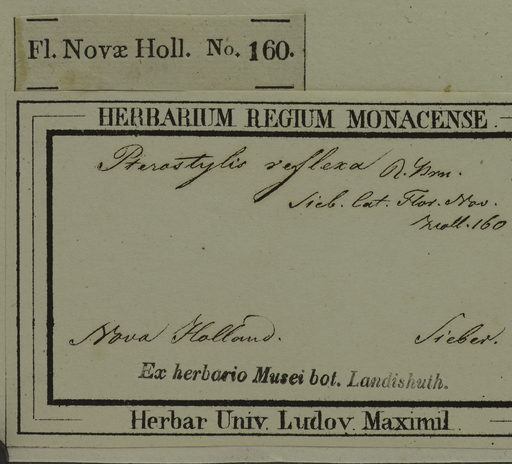 Fl. Novæ Holl. No. 160.
HERBARIUM REGIUM MONACENSE
Pterostylis reflexa R. Brn.
Sieb. Cat. Flor. Nov.
Holl. 160
Nova Holland. Sieber.
Ex herbario Musei bot. Landishuth.
Herbar Univ. Ludov. Maximil